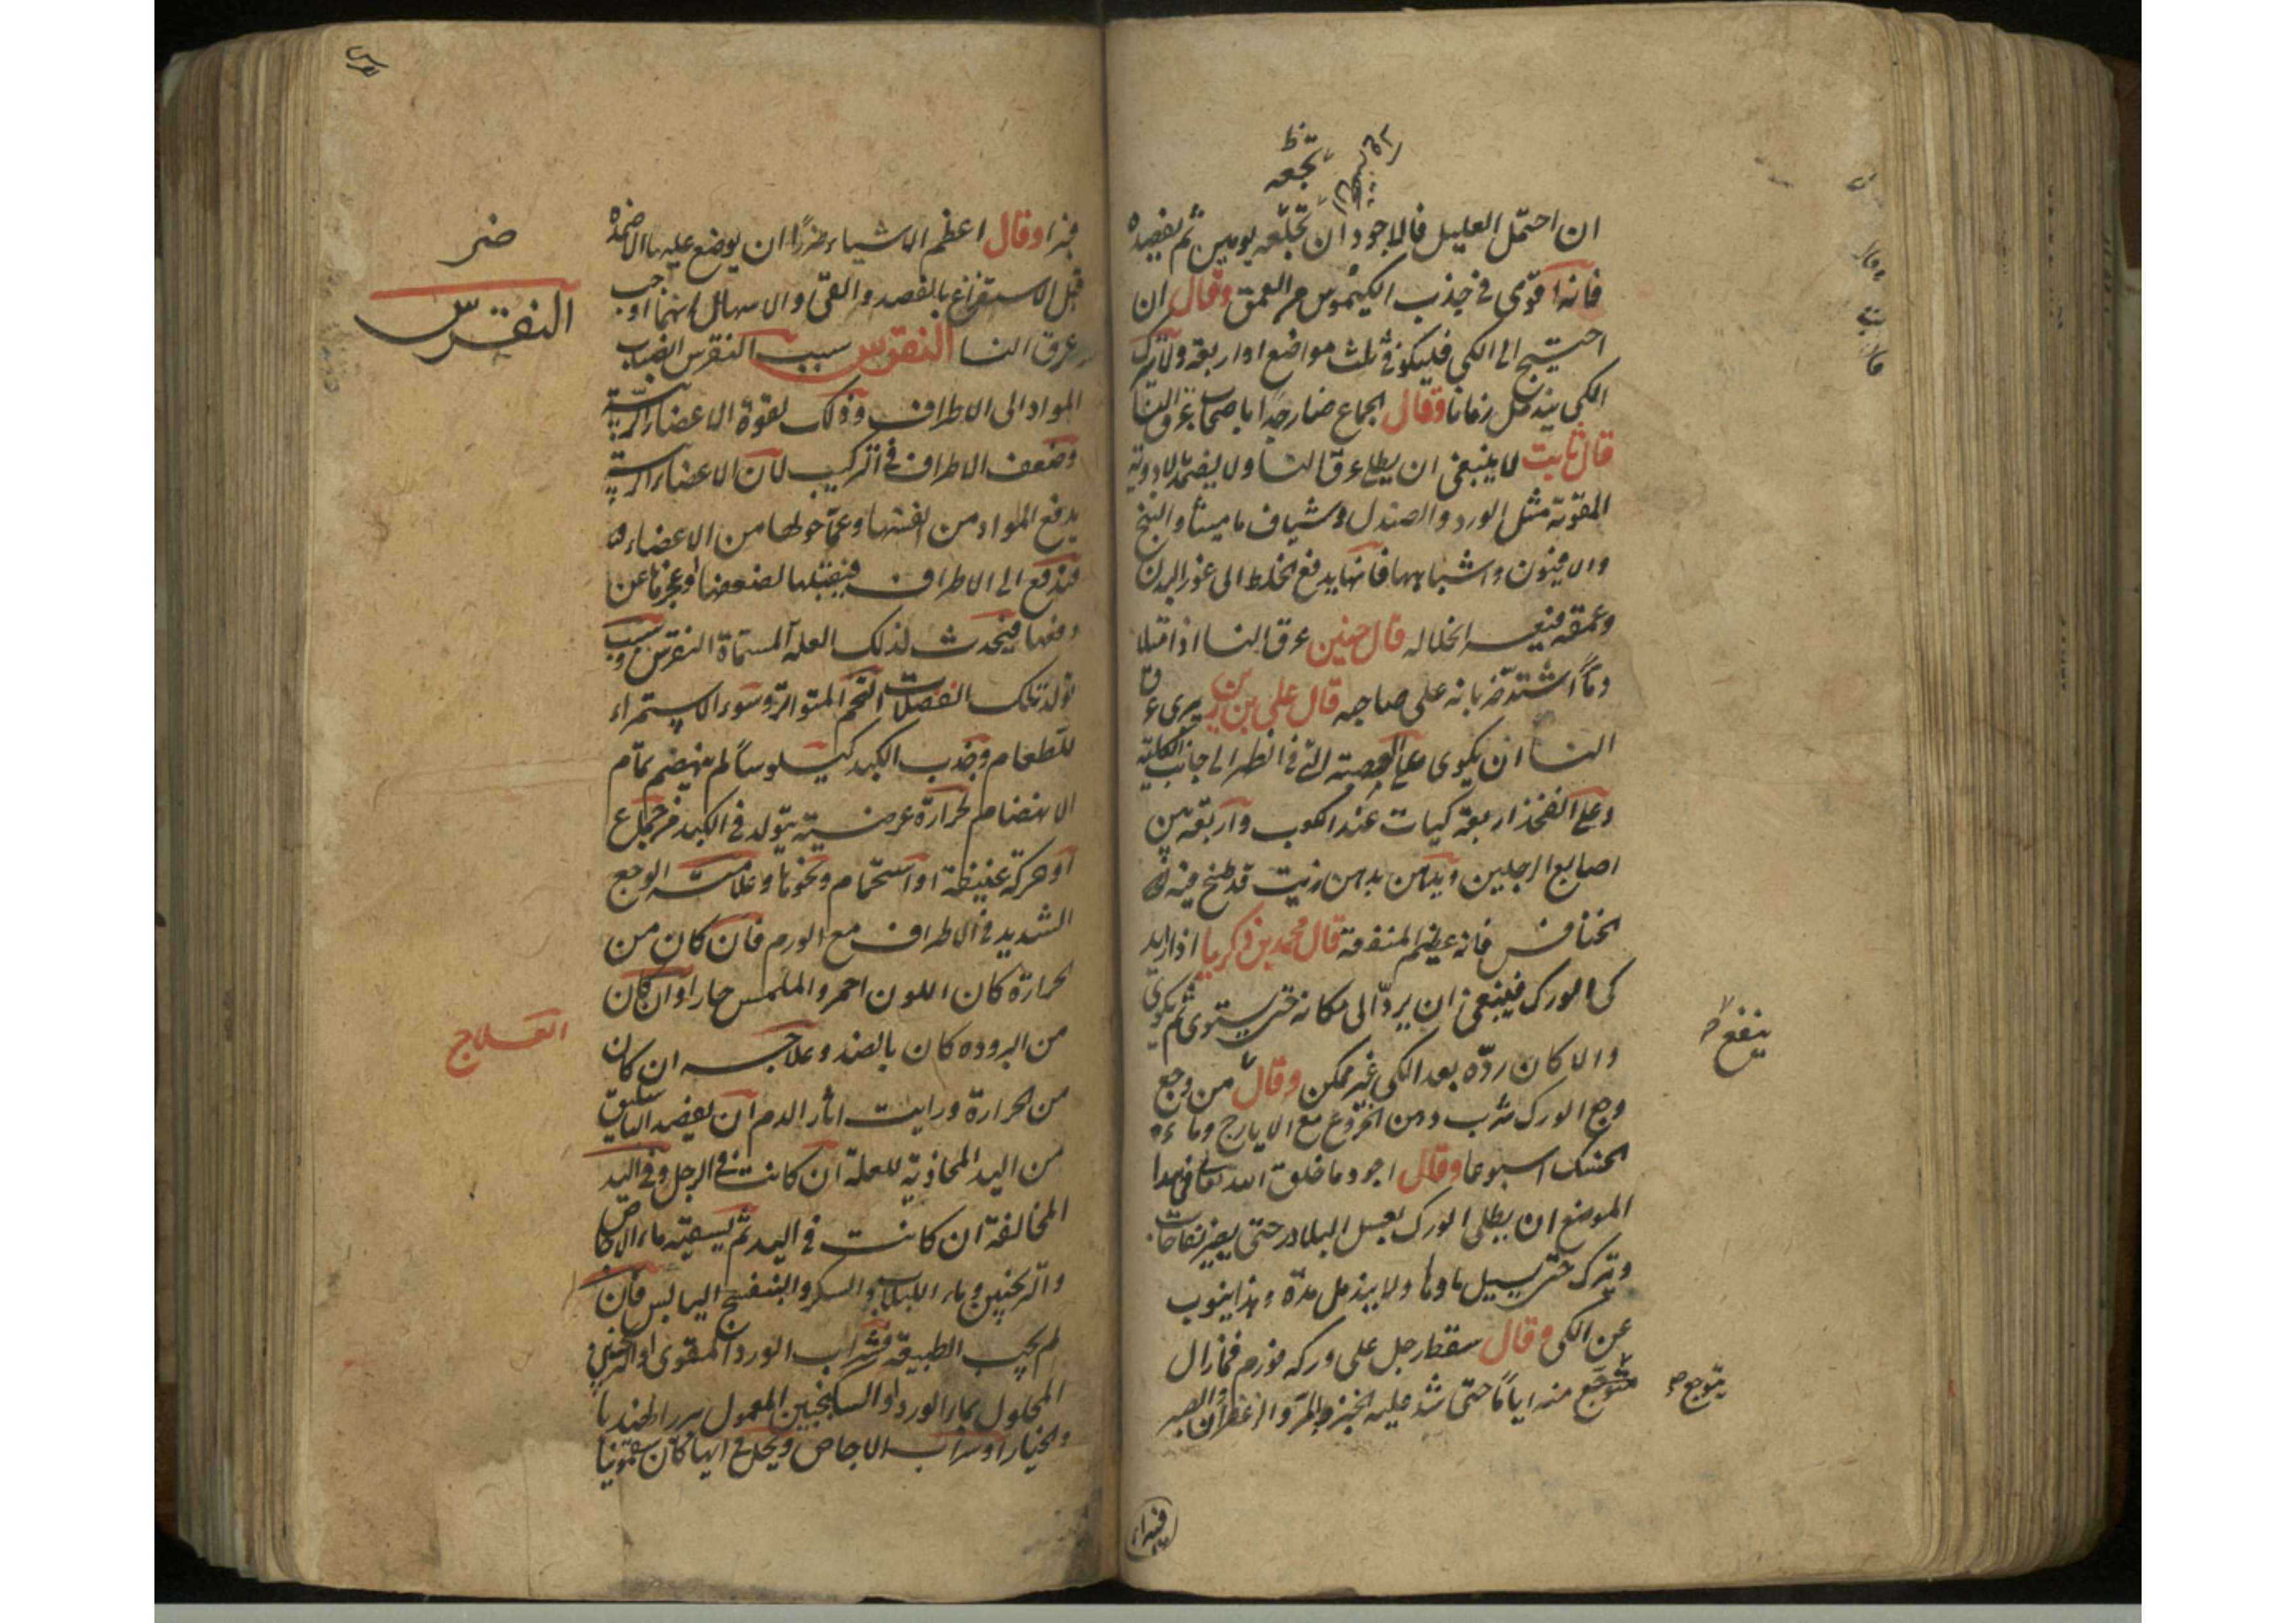 تجعه
ان احتمل العليل فالاجود ان يجلعه يومين ثم يفصده
فانه اقوى في جذب الكيموس من العمق وقال ان
احتيج الى الكى فليكن في ثلث مواضع او اربعة ولا يترك
الكى يندمل زمانا وقال الجماع ضار جدا باصحاب عرق النسا
قال ثابت لا ينبغى ان يطلى عرق النسا ولا يضمد بالادوية
المقوية مثل الورد والصندل وشياف ماميثا والبنج
والافيون واشباهها فانها يدفع الخلط الى غور البدن
وعمقه فيعسر انحلاله قال حنين عرق النسا اذا امتلا
دما اشتد ضربانه على صاحبه قال على بن ربن يبرى عرق
النسا ان يكوى على العصبة التى في الظهر الى جانب الكلية
وعلى الفخذ اربعة كيات عند الكوب واربعة بين
اصابع الرجلين ويدهن بدهن زيت قد طبخ فيه
الخنافس فانه عظيم المنفعة قال محمد بن زكريا اذا اريد
كى الورك فينبغى ان يرد الى مكانه حتى يستوى ثم يكوى
والا كان رده بعد الكى غير ممكن وقال من وجع
وجع الورك شرب دهن الخروع مع الايارج وماء
الحسك اسبوعا وقال اجود ما خلق الله تعالى في هذا
الموضع ان يطلى الورك بعسل البلادر حتى يصير نفاخات
ويترك حتى يسيل ماوها ولا يندمل مدة وهذا ينوب
عن الكى وقال سقط رجل على وركه فورم فما زال
متوجع منه اياما حتى شد عليه الخبز والمر والزعفران والصبر
ينفع
يتوجع
فبرا
فبرا وقال اعظم الاشياء ضررا ان يوضع عليها الاضمدة
قبل الاستفراغ بالفصد والقى والاسهال ايهما اوجب
عرق النسا النقرس سبب النقرس انصباب
المواد الى الاطراف وذلك لقوة الاعضاء الرئيسية
وضعف الاطراف في التركيب لان الاعضاء الرئيسية
يدفع المواد من انفسها وعما حولها من الاعضاء
فيندفع الى الاطراف فيقبلها لضعفها وعجزها عن
دفعها فيحدث لذلك العلة المسماة النقرس وسبب
تولد تلك الفضلات التخم المتواترة وسوء الاستمراء
للطعام وجذب الكبد كيلوسا لم ينهضم تمام
الانهضام لحرارة عرضية يتولد في الكبد من جماع
او حركة عنيفة او استحمام ونحوها وعلامته الوجع
الشديد في الاطراف مع الورم فان كان من
الحرارة كان اللون احمر والملمس حارا وان كان
من البرودة كان بالضد وعلاجه ان كان
من الحرارة ورايت اثار الدم ان يفصد الباسليق
من اليد المحاذية للعلة ان كانت في الرجل وفي اليد
المخالفة ان كانت في اليد ثم يسقيه ماء الاجاص
والترنجبين وماء اللبلاب والسكر والبنفسج اليابس فان
لم يجب الطبيعة فشراب الورد المقوى او الترنجبين
المحلول بماء الورد او السكنجبين المعمول ببزر الهندبا
والخيار او شراب الاجاص ويحل في ايها كان سقمونيا
النقرس
العلاج